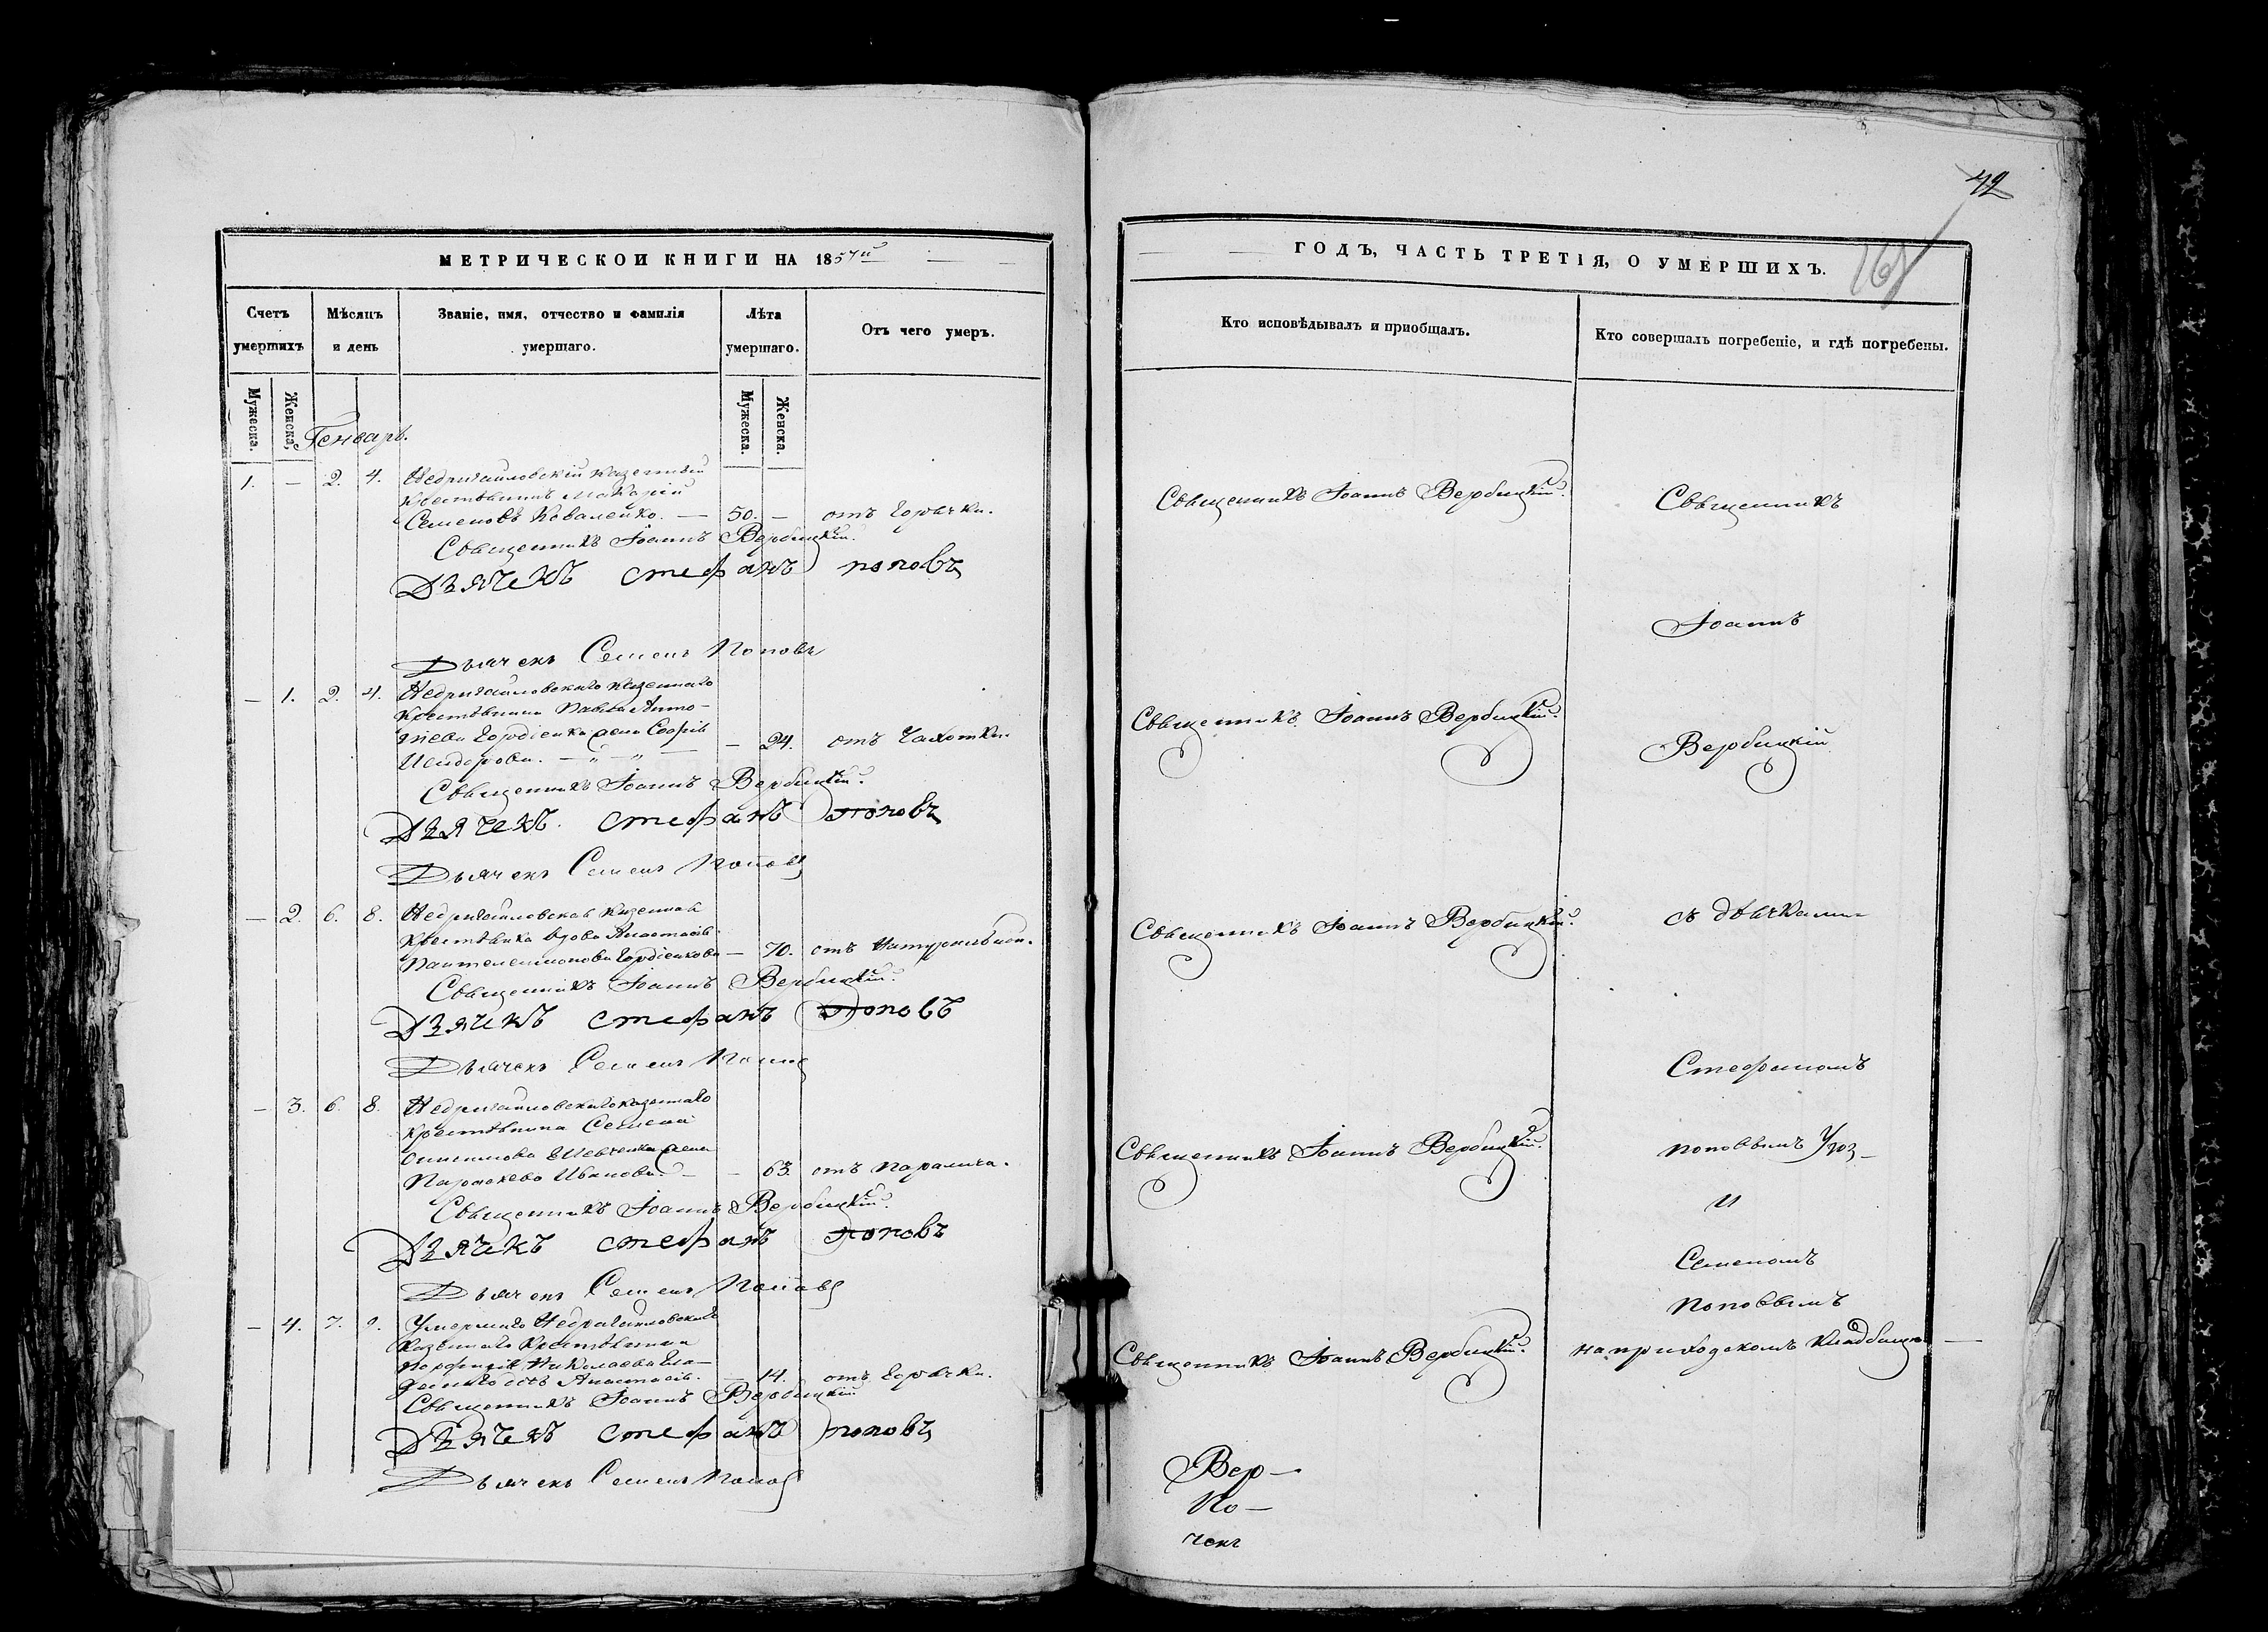 МЕТРИЧЕСКОЙ КНИГИ НА 1857й
Счетъ умершихъ
Мѣсяцъ и день
Званіе, имя, отчество и фамилія умершаго.
Лѣта умершаго.
Отъ чего умеръ.
Мужеска.
Женска.
Мужеска.
Женска.
Генварь.
1. — 2. 4. Недригайловскій казенный
крестьянинъ Макарій
Семеновъ Коваленко. — 50. — отъ горячки.
Священникъ Іоаннъ Вербицкій.
Дьячекъ стефанъ поповъ
Дьячекъ Семенъ Поповъ
— 1. 2. 4. Недригайловскаго казеннаго
крестьянина Павла Анто-
ніева Гордіенка жена Софія
Исидорова. — „ — „ — — 24. отъ Чахотки.
Священникъ Іоаннъ Вербицкій.
Дьячекъ. стефанъ поповъ
Дьячекъ Семенъ Поповъ
— 2. 6. 8. Недригайловская казенная
крестьянка вдова Анастасія
Пантелеимонова Гордіенкова — 70. отъ натуральной.
Священникъ Іоаннъ Вербицкій.
Дьячекъ стефанъ поповъ
Дьячекъ Семенъ Поповъ
— 3. 6. 8. Недригайловскаго казеннаго
крестьянина Семена
Шевченка жена
Параскева Иванова — — 63. отъ паралича.
Священникъ Іоаннъ Вербицкій.
Дьячекъ стефанъ поповъ
Дьячекъ Семенъ Поповъ
— 4. 7. 9. Умершаго Недригайловскаго
казеннаго крестьянина
Порфирія Николаева
дочь Анастасія. — 14. отъ горячки.
Священникъ Іоаннъ Вербицкій
Дьячекъ стефанъ поповъ
Дьячекъ Семенъ Поповъ
42
ГОДЪ, ЧАСТЬ ТРЕТІЯ, О УМЕРШИХЪ.
Кто исповѣдывалъ и приобщалъ.
Кто совершалъ погребеніе, и гдѣ погребены.
Священникъ Іоаннъ Вербицкій.
Священникъ Іоаннъ Вербицкій.
Священникъ Іоаннъ Вербицкій.
Священникъ Іоаннъ Вербицкій.
Священникъ Іоаннъ Вербицкій.
Священникъ
Іоаннъ
Вербицкій
съ дьячками
Стефаномъ
Поповымъ
и
Семеномъ
Поповымъ
на приходскомъ кладбищѣ —
Вер—
По—
чекъ